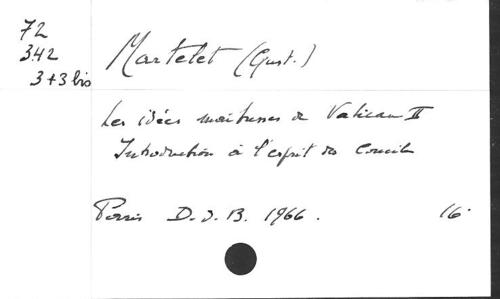 72
342
3+3 bis
Martelet (Gust.)
Les idées maitresses de Vatican II
Introduction à l'esprit du Concile
Paris D.d.B. 1966.
16